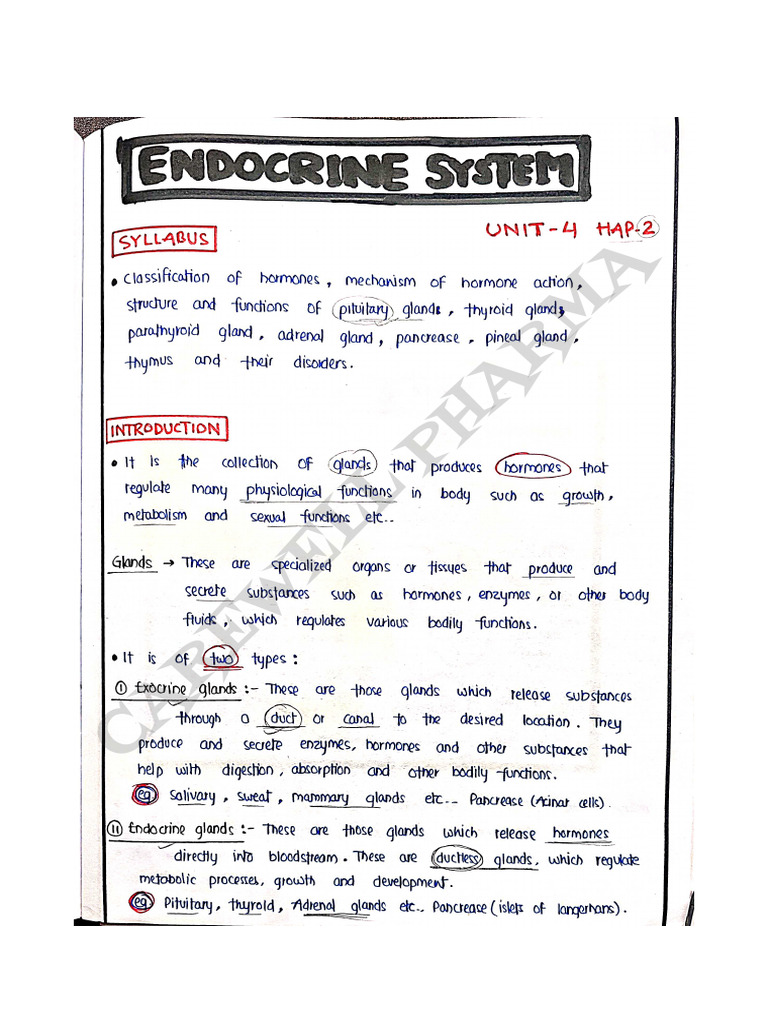 ENDOCRINE SYSTEM
UNIT-4 HAP-2
SYLLABUS
• Classification of hormones, mechanism of hormone action,
structure and functions of pituitary glands, thyroid glands,
parathyroid gland, adrenal gland, pancrease, pineal gland,
thymus and their disorders.
INTRODUCTION
• It is the collection of glands that produces hormones that
regulate many physiological functions in body such as growth,
metabolism and sexual functions etc..
Glands → These are specialized organs or tissues that produce and
secrete substances such as hormones, enzymes, or other body
fluids, which regulates various bodily functions.
• It is of two types:
(i) Exocrine glands :- These are those glands which release substances
through a duct or canal to the desired location. They
produce and secrete enzymes, hormones and other substances that
help with digestion, absorption and other bodily functions.
eg Salivary, sweat, mammary glands etc... Pancrease (Acinar cells).
(ii) Endocrine glands :- These are those glands which release hormones
directly into bloodstream. These are ductless glands, which regulate
metabolic processes, growth and development.
eg Pituitary, thyroid, Adrenal glands etc.., Pancrease (islets of langerhans).
CAREWELL PHARMA